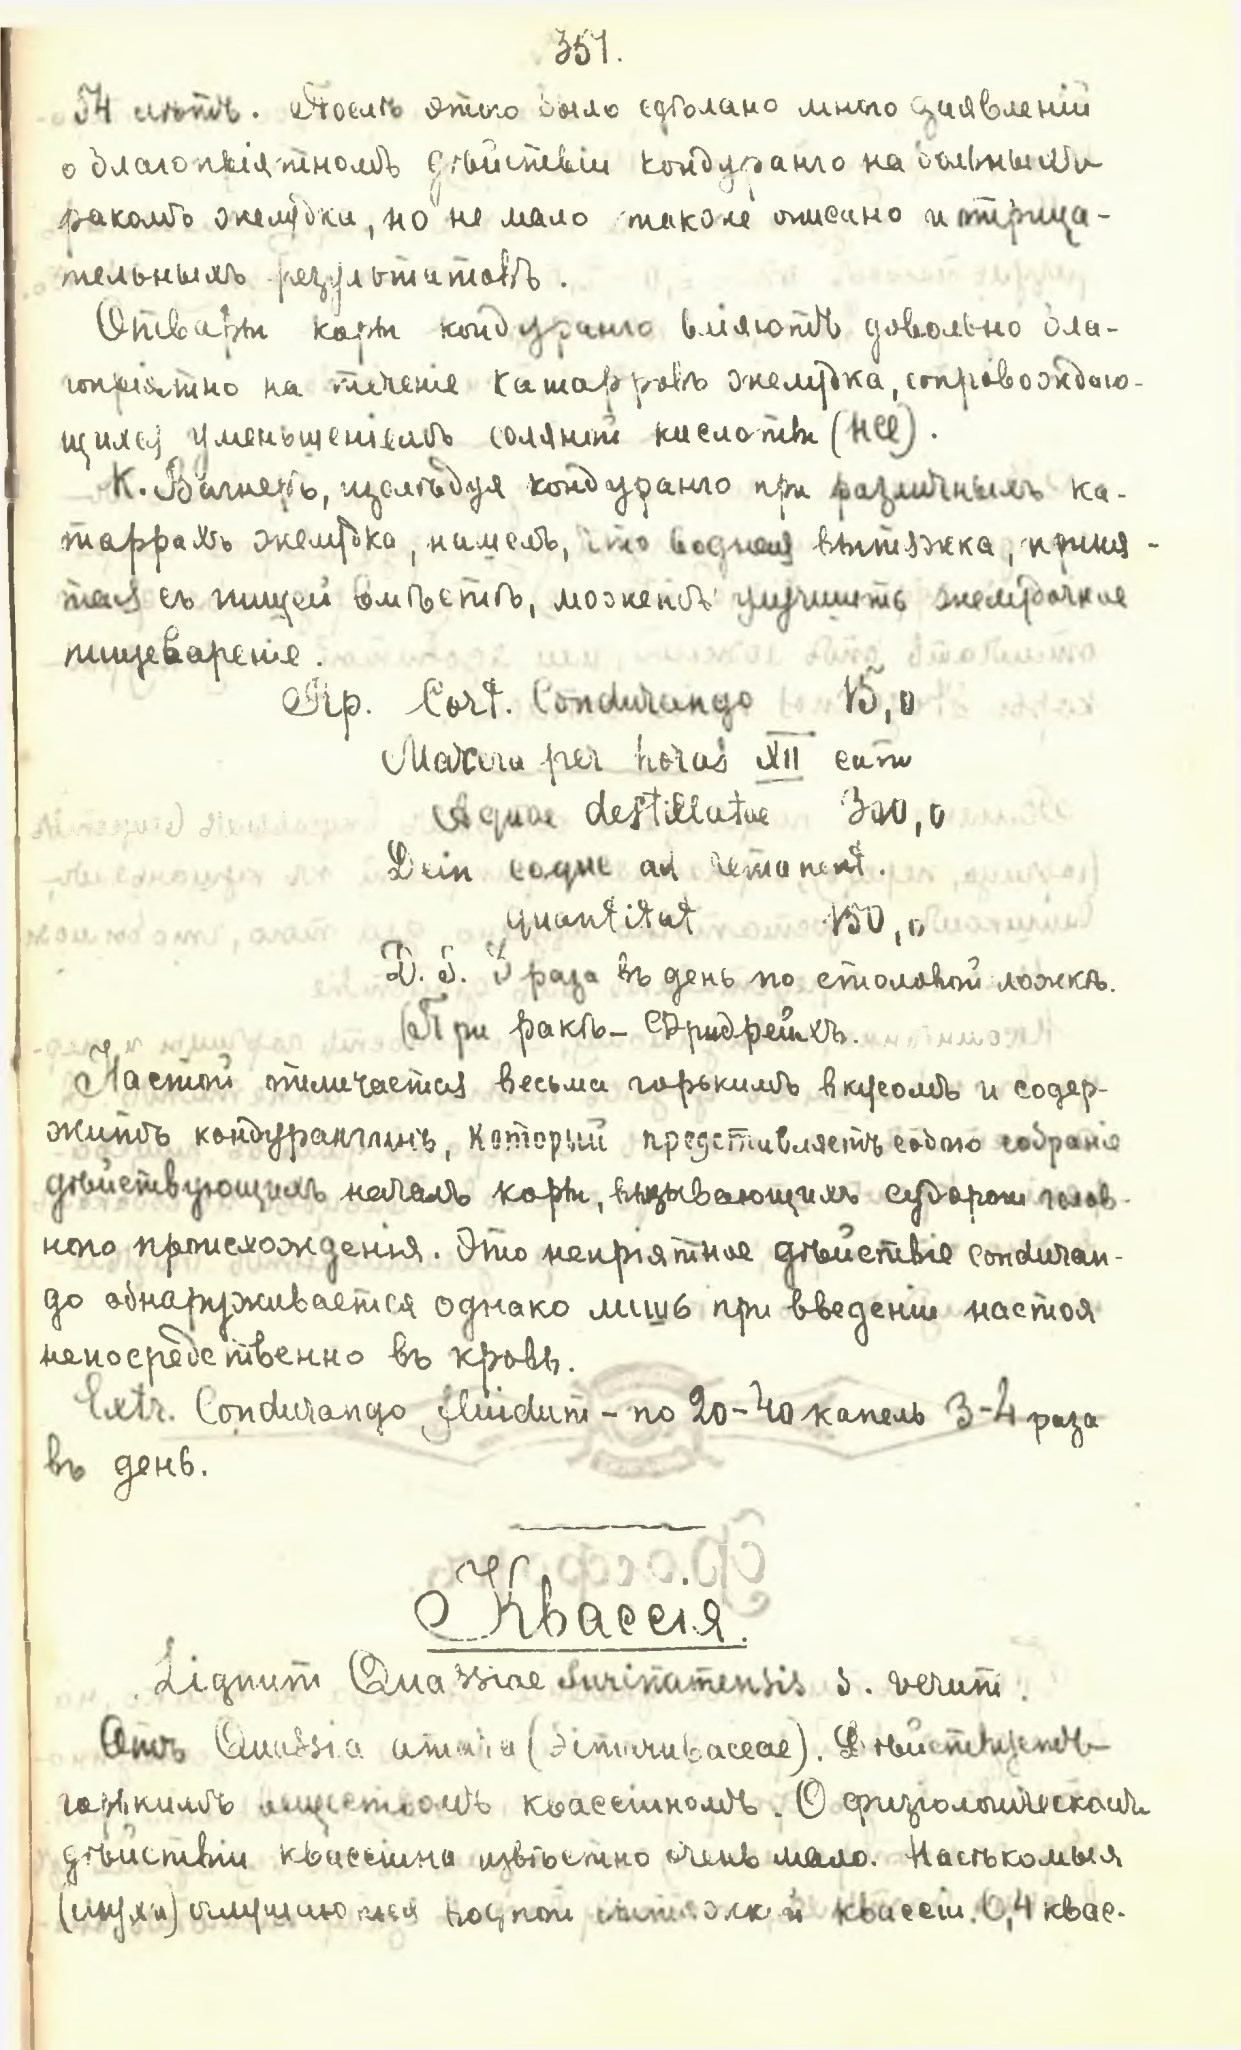 351.
54 лѣтъ. Послѣ этого было сдѣлано много заявленій
о благопріятномъ дѣйствіи кондуранго на больныхъ
ракомъ желудка, но не мало также описано и отрица-
тельныхъ результатовъ.
Отвары коры кондуранго вліяютъ довольно бла-
гопріятно на теченіе катарровъ желудка, сопровождаю-
щихся уменьшеніемъ соляной кислоты (HCl).
К. Вагнеръ, изслѣдуя кондуранго при различныхъ ка-
таррахъ желудка, нашелъ, что водная вытяжка, приня-
тая съ пищей вмѣстѣ, можетъ улучшить желудочное
пищевареніе.
Rp. Cort. Condurango 15,0
Macera per horas XII cum
Aquae destillatae 300,0
Dein coque ad remanent.
quantitat 150,0
D. S. 3 раза въ день по столовой ложкѣ.
При ракѣ – Фридрейхъ.
Настой отличается весьма горькимъ вкусомъ и содер-
житъ кондурангинъ, который представляетъ собою собраніе
дѣйствующихъ началъ коры, вызывающихъ судороги голов-
ного происхожденія. Это непріятное дѣйствіе conduran-
до обнаруживается однако лишь при введеніи настоя
непосредственно въ кровь.
Extr. Condurango fluidum – по 20–40 капель 3–4 раза
въ день.
Квассія.
Lignum Quassiae Surinamensis s. verum.
Отъ Quassia amara (Simarubaceae). Дѣйствуетъ
горькимъ веществомъ квассіиномъ. О физіологическомъ
дѣйствіи квассіина извѣстно очень мало. Насѣкомыя
(мухи) оглушаются водной вытяжкой квассіи. 0,4 квас-